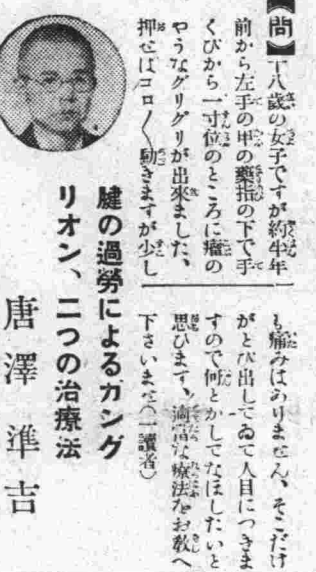 【問】十八歳の女子ですが約半年
前から左手の甲の藥指の下で手
くびから一寸位のところに瘤の
やうなグリグリが出來ました、
押せばコロ〱動きますが少し
も痛みはありません、そこだけ
がとび出してゐて人目につきま
すので何とかしてなほしたいと
思ひます、適當な療法をお敎へ
下さいませ(一讀者)
腱の過勞によるガング
リオン、二つの治療法
唐澤準吉